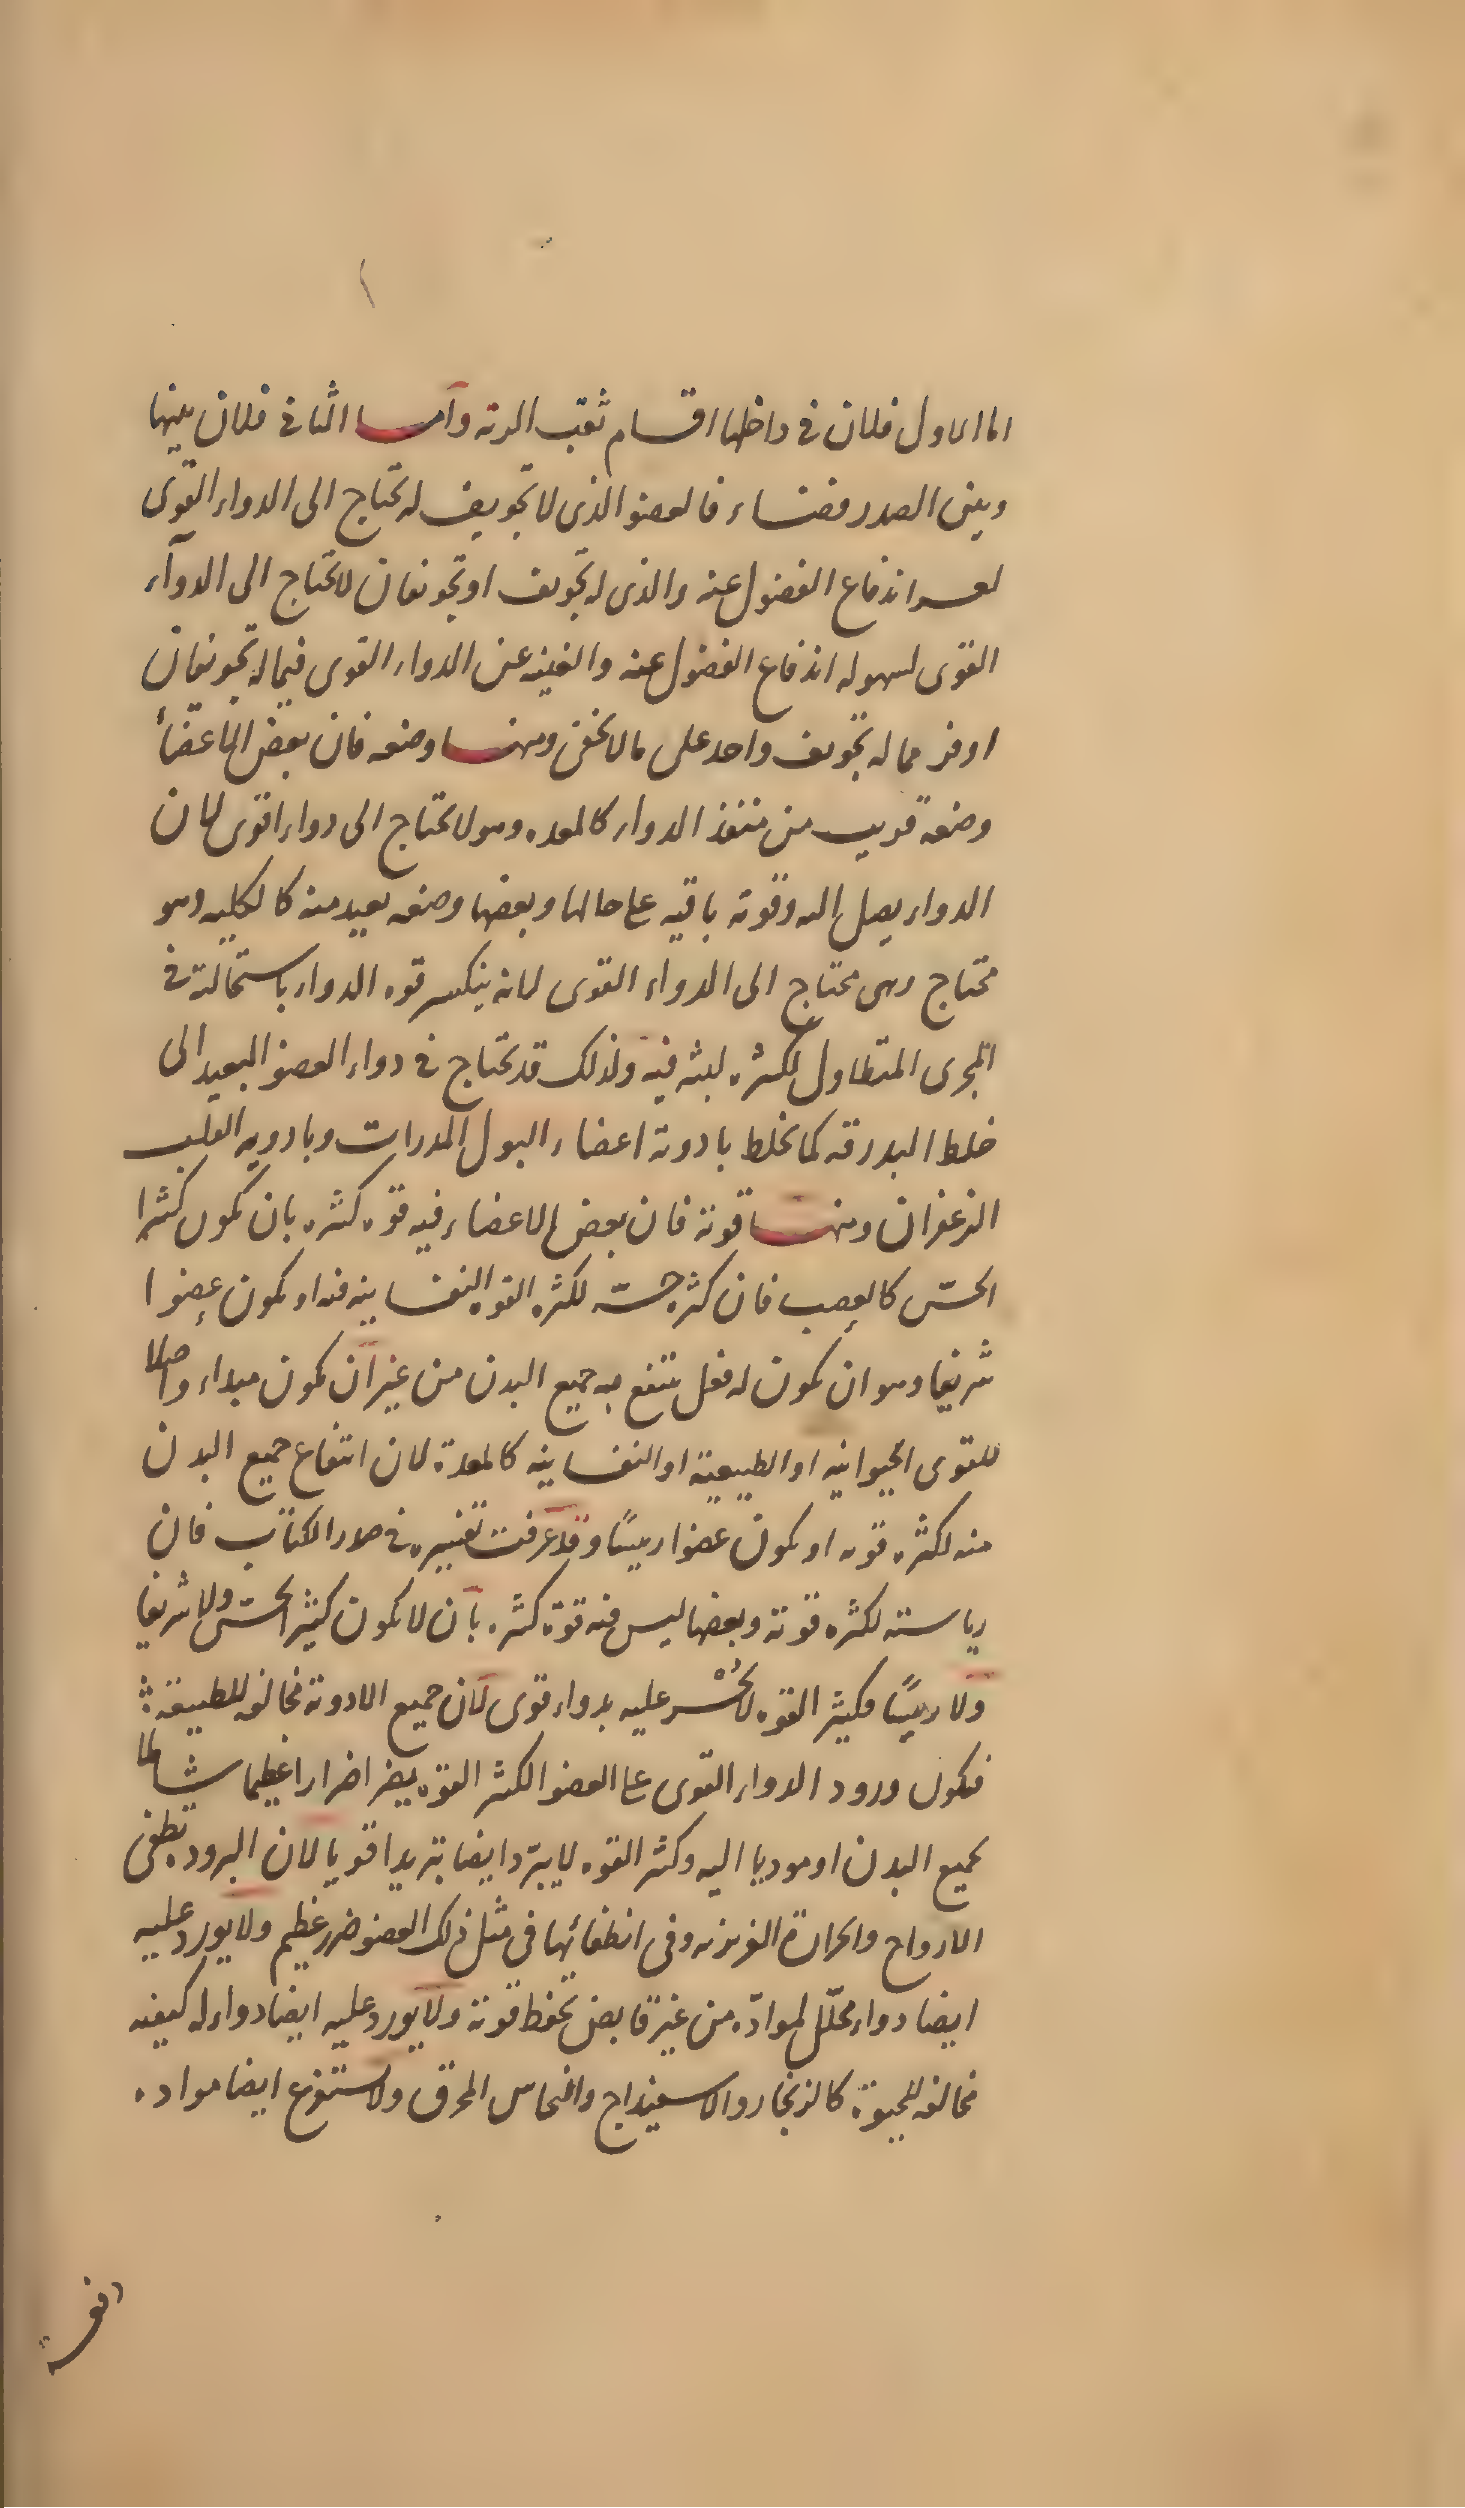 اما الاول فلان فى داخلها اقسام ثقب الرية واما الثانى فلان بينها
وبين الصدر فضاء فالعضو الذى لا تجويف له تحتاج الى الدواء القوى
لعسر اندفاع الفضول عنه والذى له تجويف او تجويفان لا تحتاج الى الدوآء
القوى لسهوله اندفاع الفضول عنه والغنيه عن الدواء القوى فيما له تجويفان
اوفر مما له تجويف واحد على ما لا تخفى ومنها وضعه فان بعض الاعضأ
وضعه قريب من منفذ الدواء كالمعده وهو لا تحتاج الى دواء اقوى لان
الدواء يصل اليه وقوته باقيه على حالها وبعضها وضعه بعيد منه كالكليه وهو
محتاج وهى محتاج الى الدواء القوى لانه ينكسر قوه الدواء باستحالته فى
المجرى المتطاول لكثره لبثه فيه ولذلك قد تحتاج فى دواء العضو البعيد الى
خلط البدرقه كما تخلط بادوية اعضاء البول المدرات وبادويه القلب
الزعفران ومنها قوته فان بعض الاعضاء فيه قوه كثره بان يكون كثيرا
الحسّ كالعصب فان كثره حسّه لكثره القوه النفسانيه فيه او يكون عضوا
شريفا وهو ان يكون له فعل ينتفع به جميع البدن من غير ان يكون مبداء واصلا
للقوى الحيوانيه او الطبيعية او النفسانيه كالمعدة لان انتفاع جميع البدن
منه لكثره قوته او يكون عضوا رييسًا وقد عرفت تفسيره فى صدر الكتاب فان
رياسته لكثره قوته وبعضها ليس فيه قوة كثره بان لا يكون كثير الحسّ ولا شريفا
ولا رييسًا فكثير القوه لا تجسر عليه بدواء قوى لان جميع الادوية مخالفه للطبيعة
فيكون ورود الدواء القوى على العضو الكثير القوه يضر اضرارا عظيما شاملا
لجميع البدن او موديا اليه وكثير القوه لا يبرّد ايضا تبريدا قويا لان البرود تطفى
الارواح والحرارة الغريزيه وفى انطفائها فى مثل ذلك العضو ضرر عظيم ولا يورد عليه
ايضا دواء محلّل لموادّه من غير قابض تحفظ قوته ولا يورد عليه ايضا دواء له كيفيه
مخالفه للحيوة كالزنجار والاسفيداج والنحاس المحرق ولا ستفرغ ايضا مواده